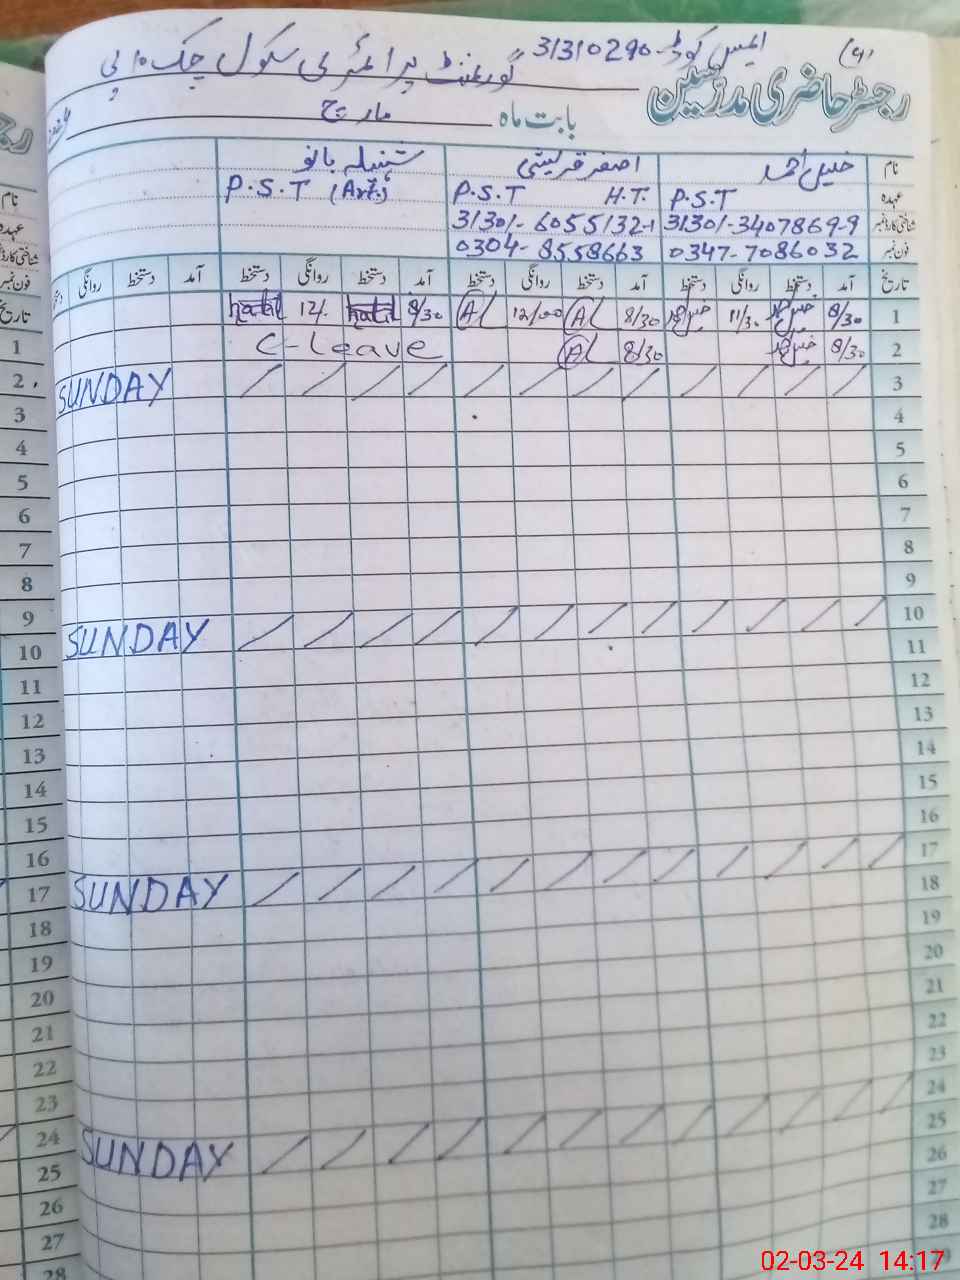 (4) ایمس کوڈ 31310290
رجسٹر حاضری مدرسین گورنمنٹ پرائمری سکول چک 10 پی
بابت ماہ مارچ
نام خلیل احمد اصغر قریشی شنیلہ بانو
عہدہ P.S.T P.S.T H.T. P.S.T (Arts)
شناختی کارڈ نمبر 31301-3407869-9 31301-6055132-1
فون نمبر 0347-7086032 0304-8558663
تاریخ آمد دستخط روانگی دستخط آمد دستخط روانگی دستخط آمد دستخط روانگی دستخط آمد دستخط روانگی دستخط
1 8/30 11/30 8/30 12/00 8/30 12/.
2 8/30 8/30 C-leave
3 SUNDAY
4
5
6
7
8
9
10 SUNDAY
11
12
13
14
15
16
17 SUNDAY
18
19
20
21
22
23
24 SUNDAY
25
26
27
28
29
نام
عہدہ
شناختی کارڈ نمبر
فون نمبر
تاریخ
1
2
3
4
5
6
7
8
9
10
11
12
13
14
15
16
17
18
19
20
21
22
23
24
25
26
27
28
02-03-24 14:17